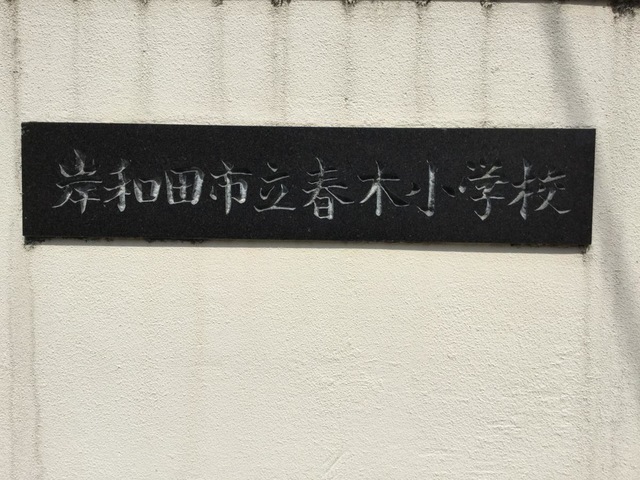 岸和田市立春木小学校